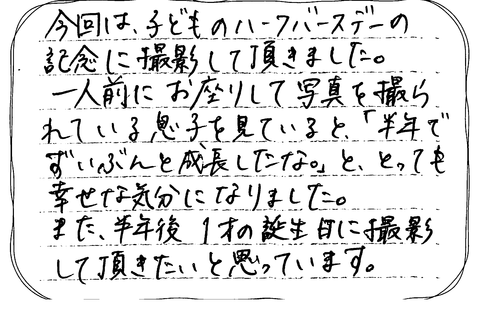 今回は、子どものハーフバースデーの
記念に撮影して頂きました。
一人前にお座りして写真を撮ら
れている息子を見ていると、「半年で
ずいぶんと成長したな。」と、とっても
幸せな気分になりました。
また、半年後1才の誕生日に撮影
して頂きたいと思っています。